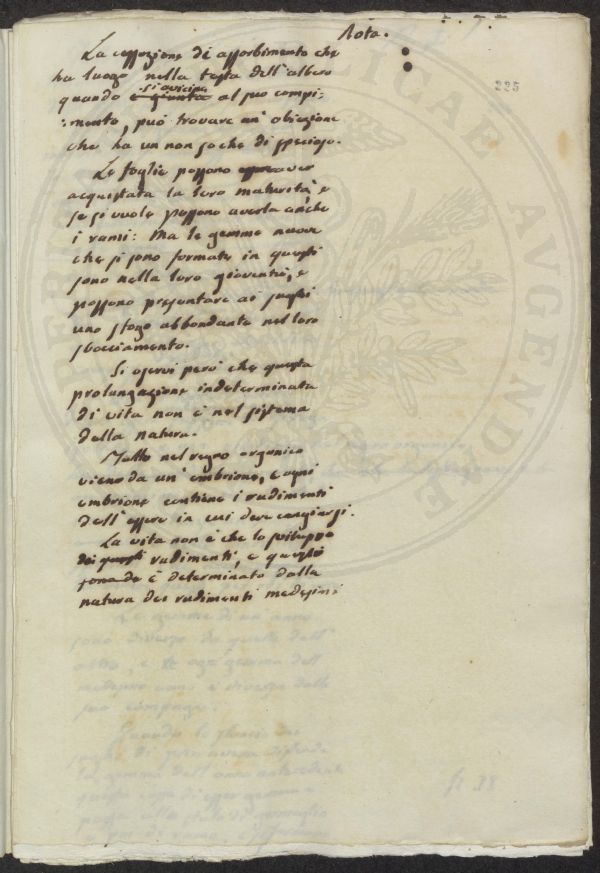 Nota.
La cessazione di assorbimento che
ha luogo nella testa dell'albero
si avicina
quando è giunta al suo compi:
:mento, può trovare un' obiezione
che ha un non so che di specioso.
Le foglie possono aver
acquistata la loro maturità, e
se si vuole possono averla anche
i rami: Ma le gemme nuove
che si sono formate in questi
sono nella loro gioventù, e
possono presentare ai sughi
uno sfogo abbondante nel loro
sbocciamento.
Si osservi però che questa
prolungazione indeterminata
di vita non è nel sistema
della natura.
Tutto nel regno organico
viene da un' embrione, e ogni
embrione contiene i rudimenti
dell'essere in cui deve cangiarsi.
La vita non è che lo sviluppo
dei questi rudimenti, e
è determinato dalla
natura dei rudimenti medesimi
225
PER AUGENDAE